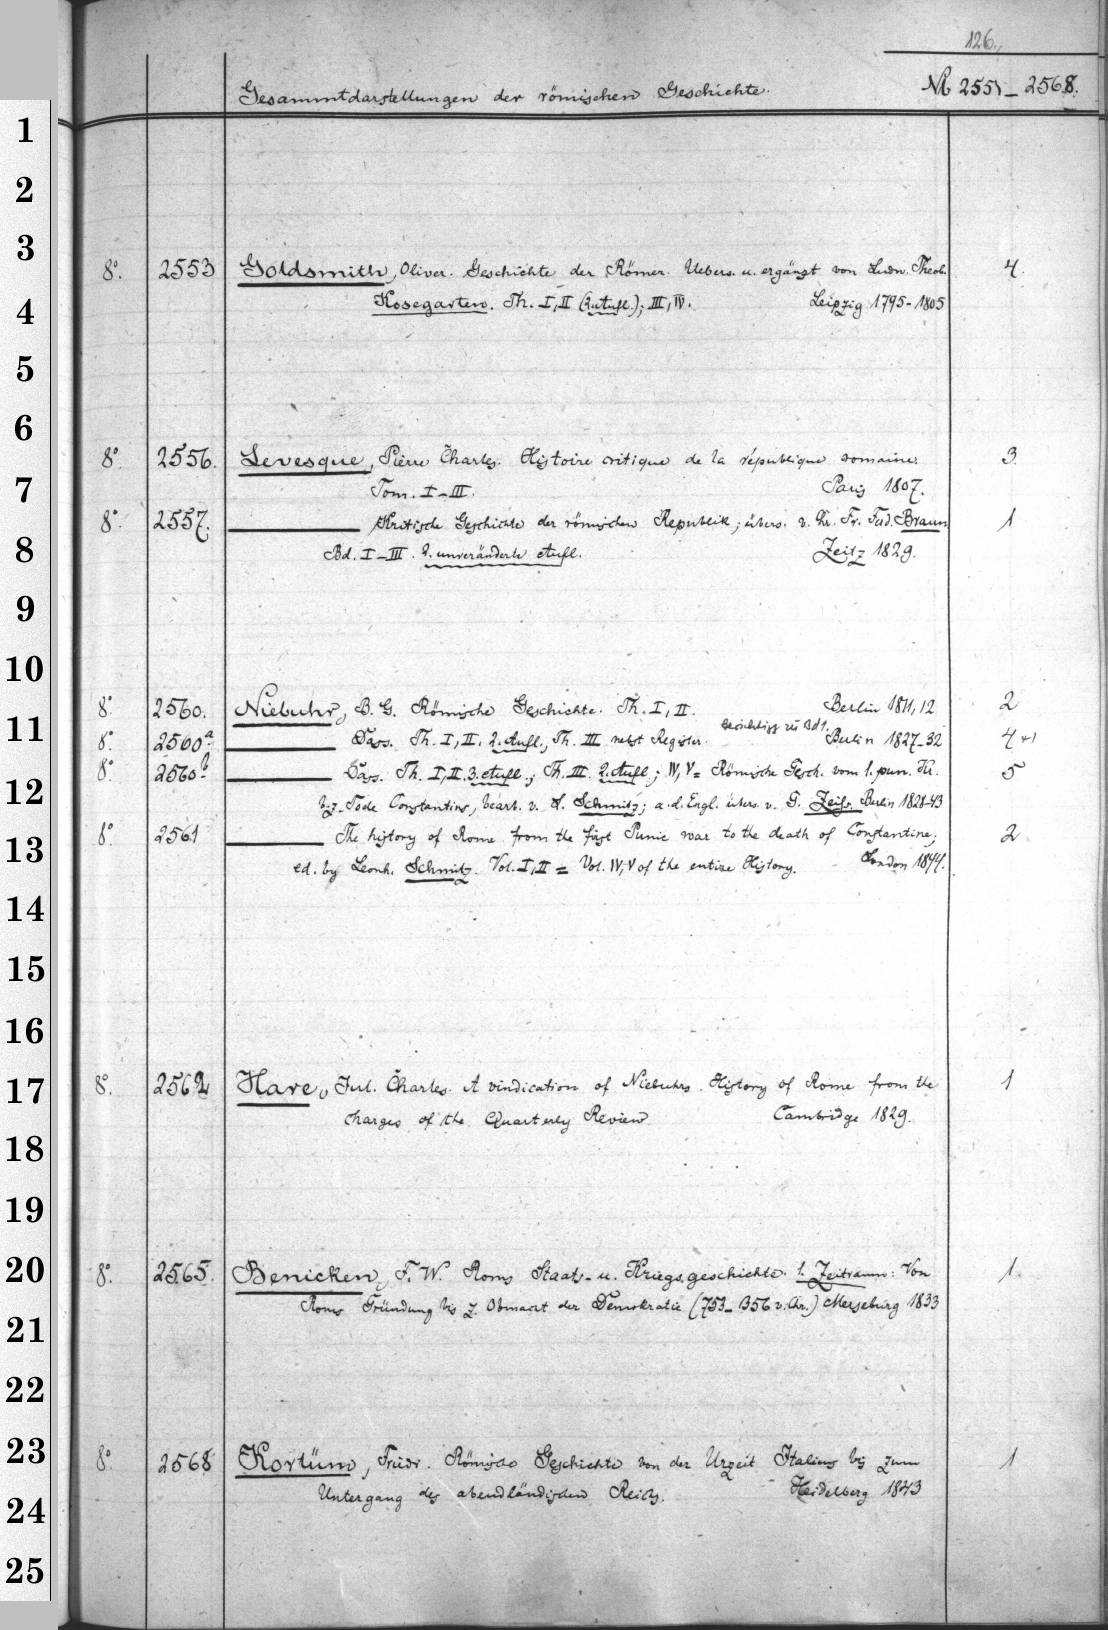 126.
Gesammtdarstellungen der römischen Geschichte. № 2551-2568.
1
2
3
8°. 2553 Goldsmith, Oliver. Geschichte der Römer. Uebers. u. ergänzt von Ludw. Theob. 4.
4 Kosegarten. Th. I, II (2. Aufl.); III, IV. Leipzig 1795-1805
5
6
8°. 2556. Levesque, Pierre Charles. Histoire critique de la république romaine. 3.
7 Tom. I-III. Paris 1807.
8°. 2557. Kritische Geschichte der römischen Republik; übers. v. Chr. Fr. Ferd. Braun 1
8 Bd. I-III. 2. unveränderte Aufl. Zeitz 1829.
9
10
8°. 2560. Niebuhr, B. G. Römische Geschichte. Th. I, II. Berlin 1811, 12 2
11 zu Bd 1.
8°. 2560a Dass. Th. I, II. 2. Aufl., Th. III nebst Register. Berlin 1827-32 4+1
8°. 2560b Dass. Th. I, II. 3. Aufl.; Th. III. 2. Aufl.; IV, V = Römische Gesch. vom 1. pun. Kr. 5
12 b. z. Tode Constantins, bearb. v. L. Schmitz; a. d. Engl. übers. v. G. Zeiss. Berlin 1828-43
8°. 2561 The history of Rome from the first Punic war to the death of Constantine; 2
13 ed. by Leonh. Schmitz. Vol. I, II = Vol. IV, V of the entire History. London 1844.
14
15
16
17 8°. 2562 Hare, Jul. Charles. A vindication of Niebuhrs History of Rome from the 1
charges of the Quarterly Review Cambridge 1829.
18
19
20 8°. 2565. Benicken, F. W. Roms Staats- u. Kriegsgeschichte. 1. Zeitraum: Von 1.
Roms Gründung bis z. Obmacht der Demokratie (753-356 v. Chr.) Merseburg 1833
21
22
23 8°. 2568 Kortüm, Friedr. Römische Geschichte von der Urzeit Italiens bis zum 1
Untergang des abendländischen Reichs. Heidelberg 1843
24
25